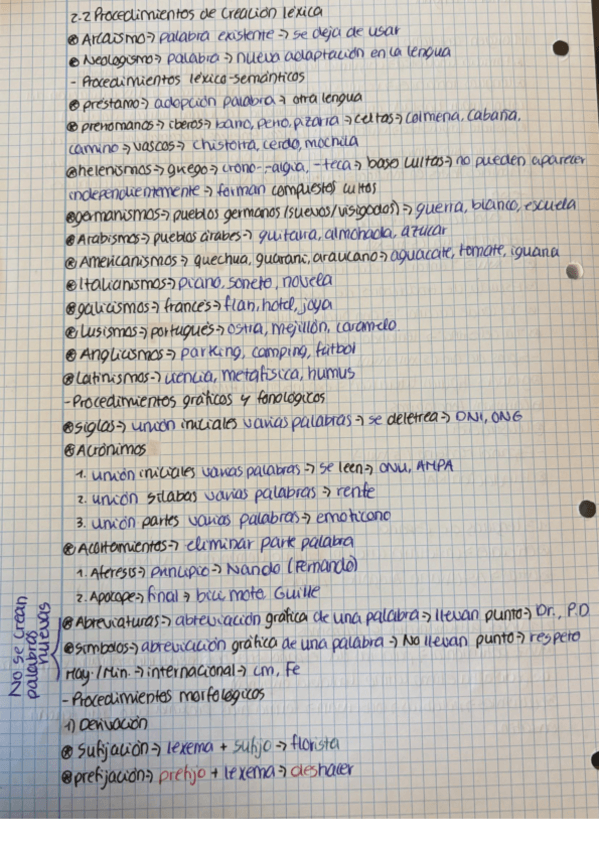 2.2 Procedimientos de creación léxica
⊛ Arcaísmo → palabra existente → se deja de usar
⊛ Neologismo → palabra → nueva adaptación en la lengua
- Procedimientos léxico-semánticos
⊛ préstamo → adopción palabra → otra lengua
⊛ prerromanos → íberos → barro, perro, pizarra → celtas → colmena, cabaña,
camino → vascos → chistorra, cerdo, mochila
⊛ helenismos → griego → crono-, -algia, -teca → bases cultas → no pueden aparecer
independientemente → forman compuestos cultos
⊛ germanismos → pueblos germanos (suevos/visigodos) → guerra, blanco, escuela
⊛ Arabismos → pueblos árabes → guitarra, almohada, azúcar
⊛ Americanismos → quechua, guaraní, araucano → aguacate, tomate, iguana
⊛ Italianismos → piano, soneto, novela
⊛ galicismos → francés → flan, hotel, joya
⊛ Lusismos → portugués → ostra, mejillón, caramelo
⊛ Anglicismos → parking, camping, fútbol
⊛ Latinismos → ciencia, metafísica, humus
- Procedimientos gráficos y fonológicos
⊛ siglas → unión iniciales varias palabras → se deletrea → DNI, ONG
⊛ Acrónimos
1. unión iniciales varias palabras → se leen → ONU, AMPA
2. unión sílabas varias palabras → renfe
3. unión partes varias palabras → emoticono
⊛ Acortamientos → eliminar parte palabra
1. Aféresis → principio → Nando (Fernando)
2. Apócope → final → bici, moto, Guille
No se crean palabras nuevas
⊛ Abreviaturas → abreviación gráfica de una palabra → llevan punto → Dr., P.D
⊛ símbolos → abreviación gráfica de una palabra → No llevan punto → respeto
May./Min. → internacional → cm, Fe
- Procedimientos morfológicos
1) Derivación
⊛ Sufijación → lexema + sufijo → florista
⊛ prefijación → prefijo + lexema → deshacer